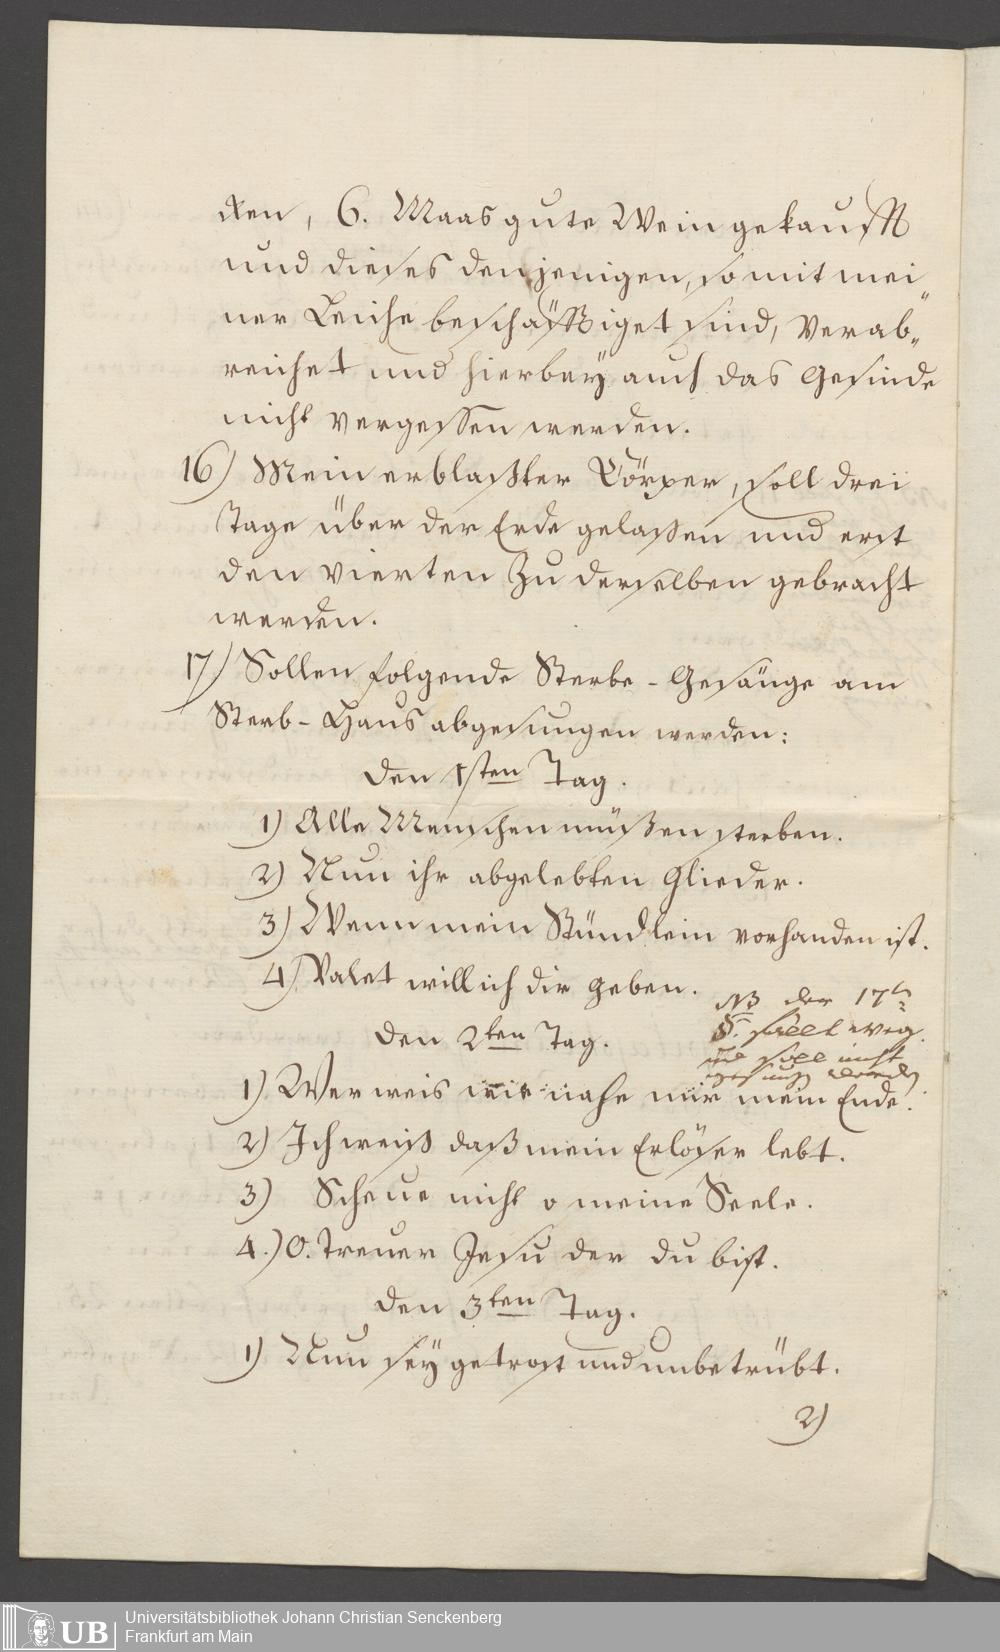 cken, 6. Maas gute Wein gekaufft
und dieses denjenigen, so mit mei„
ner Leiche beschäfftiget sind, verab„
reichet und hierbey auch das Gesinde
nicht vergessen werden.
16) Mein erblaßter Cörper, soll drei
Tage über der Erde gelaßen und erst
den vierten zu derselben gebracht
werden.
17) Sollen folgende Sterbe-Gesänge am
Sterb-Haus abgesungen werden:
den 1sten Tag.
1) Alle Menschen müßen sterben.
2) Nun ihr abgelebten Glieder.
3) Wenn mein Stündlein vorhanden ist.
4) Valet will ich dir geben.
NB der 17te
§. fällt weg
und soll nicht
gesungen werden
den 2ten Tag.
1) Wer weis wie nahe mir mein Ende.
2) Ich weiß daß mein Erlöser lebt.
3) Scheue nicht o meine Seele.
4.) O. Treuer Jesu der du bist.
den 3ten Tag.
1) Nun sey getrost und unbetrübt.
2)
UB Universitätsbibliothek Johann Christian Senckenberg
Frankfurt am Main